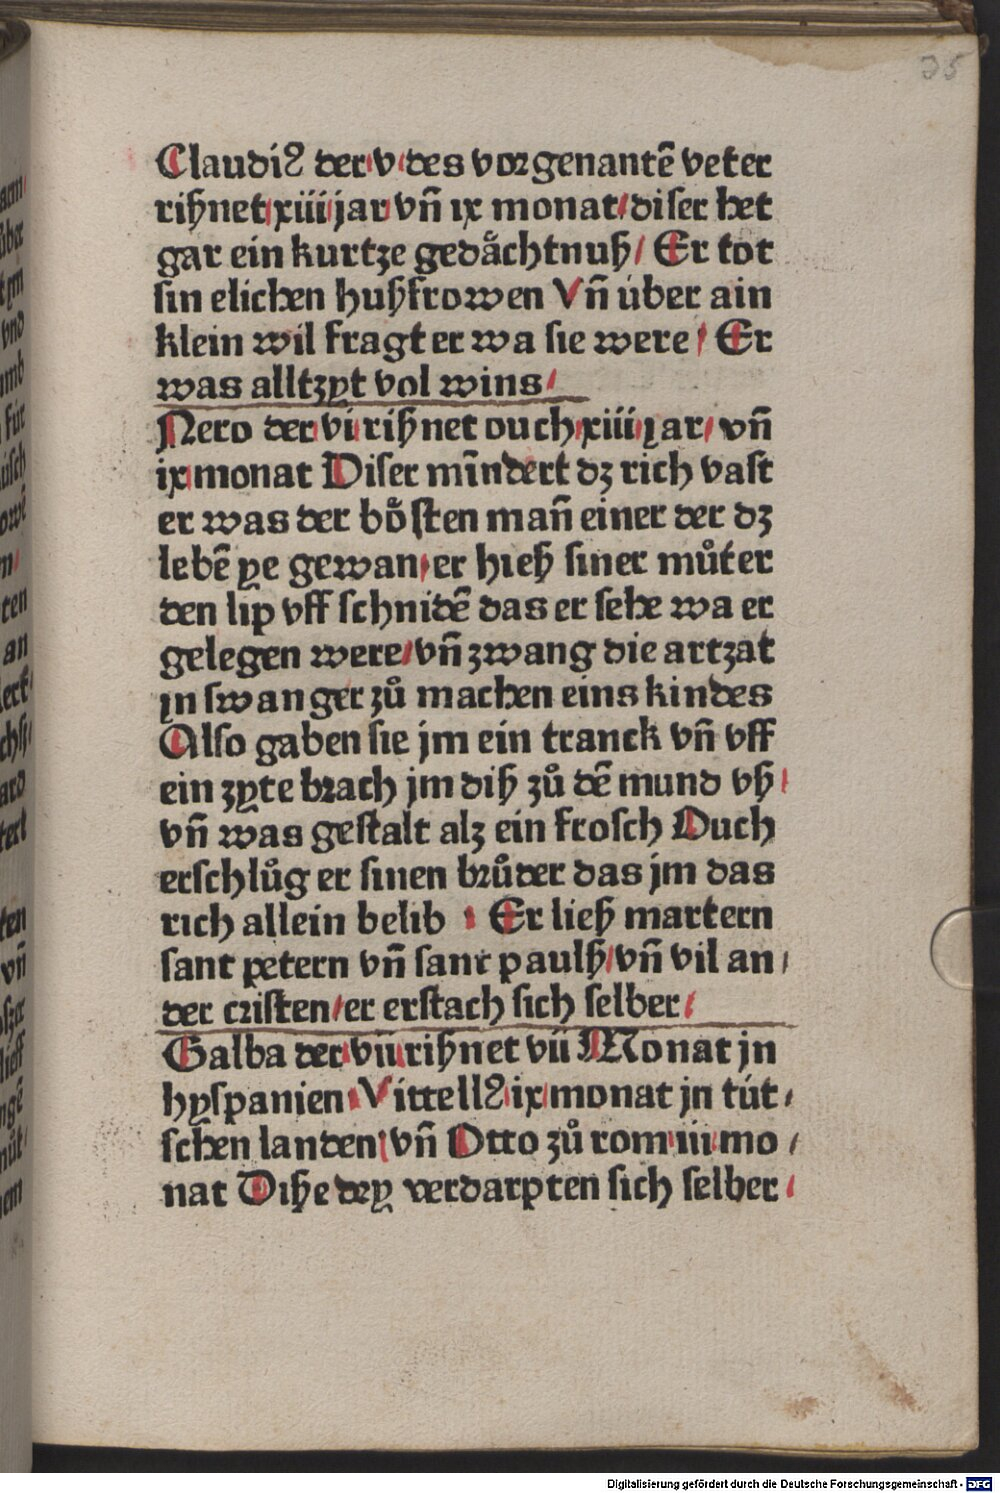 35
Claudiꝰ der v des vorgenantē veter
rißnet xiiii jar vñ ix monat / diser het
gar ein kurtze gedåchtnuß / Er tot
sin elichen hußfrowen Vñ úber ain
klein wil fragt er wa sie were / Er
was alltzyt vol wins /
Nero der vi rißnet ouch xiiii jar / vñ
ix monat Diser mīndert dz rich vast
er was der bo̊sten mañ einer der dz
lebē ye gewan / er hieß siner můter
den lip vff schnidē das er sehe wa er
gelegen were / vñ zwang die artzat
jn swanger zů machen eins kindes
Also gaben sie jm ein tranck vñ vff
ein zyte brach jm diß zů dē mund vß /
vñ was gestalt alz ein frosch Ouch
erschlůg er sinen brůder das jm das
rich allein belib / Er ließ martern
sant petern vñ sant paulß / vñ vil an /
der cristen / er erstach sich selber /
Galba der vii rißnet vii Monat jn
hyspanien Vittellꝰ ix monat jn tút /
schen landen / vñ Otto zů rom iii mo /
nat Diße dry verdarpten sich selber /
Digitalisierung gefördert durch die Deutsche Forschungsgemeinschaft - DFG